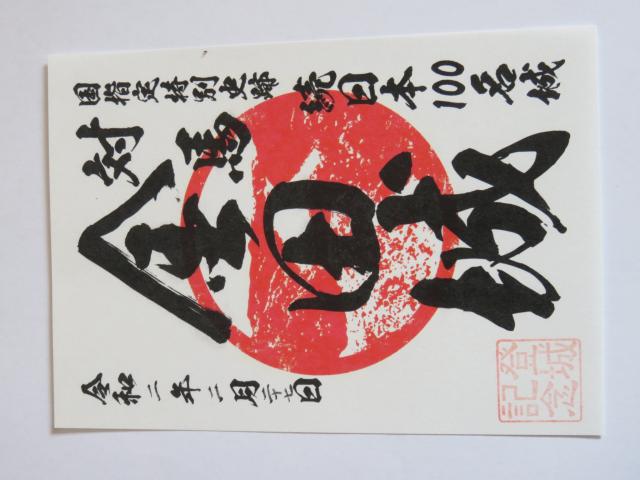 国指定特別史跡
続日本100名城
対馬
金田城
令和二年二月二十七日
登城
記念